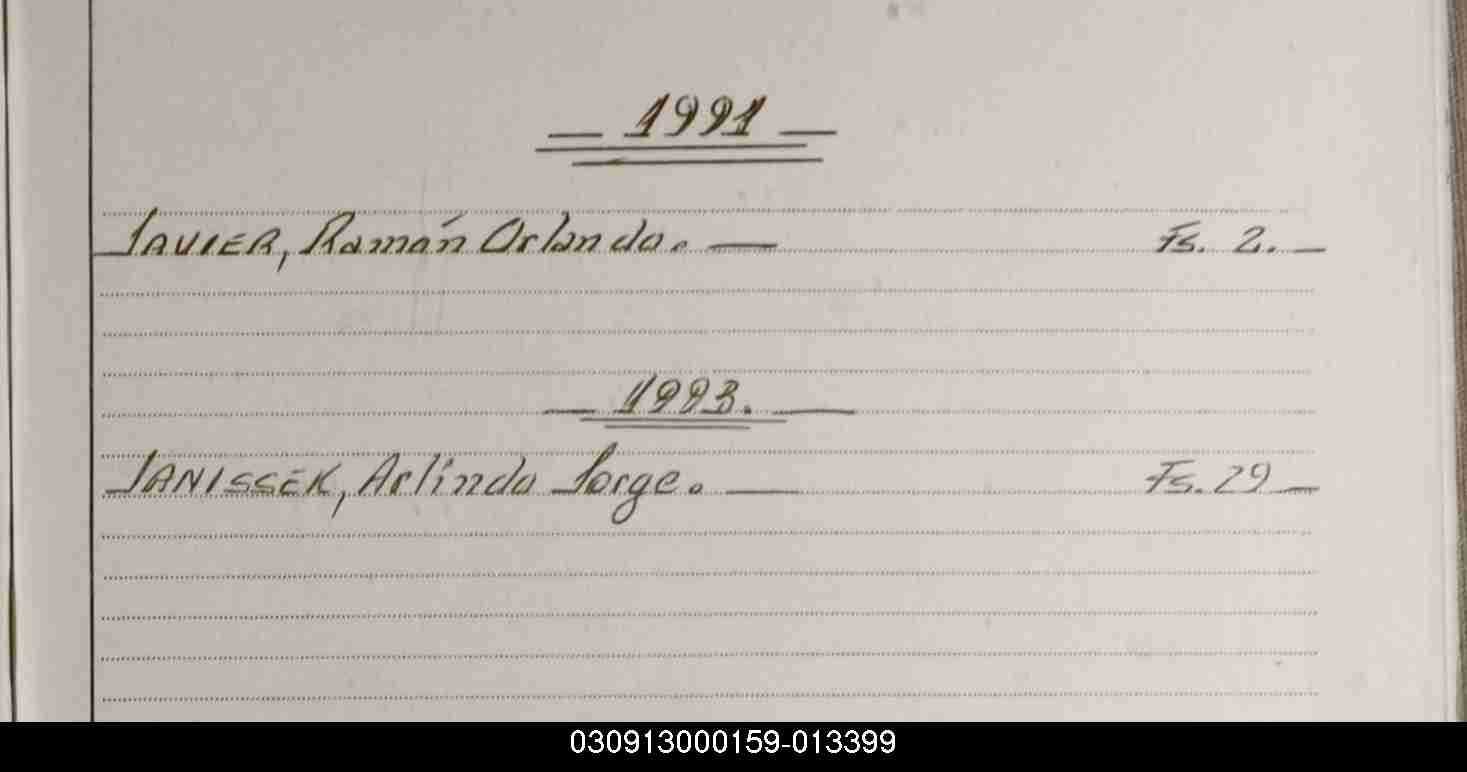 — 1991 —
JAVIER, Ramón Orlando. — Fs. 2. —
— 1993. —
JANISSEK, Arlindo Jorge. — Fs. 29 —
030913000159-013399